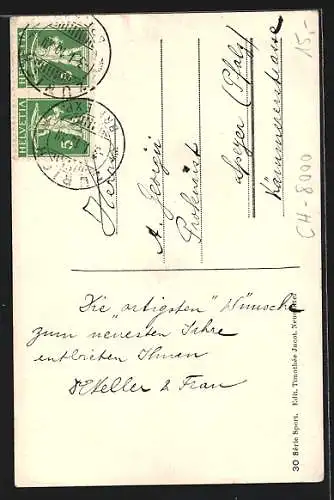 HELVETIA
5
HELVETIA
5
ZÜRICH
EXP.
Herrn
A. Georgii
Prokurist
Speyer (Pfalz)
Kämmererstrasse
Die "artigsten" Wünsche
zum neuesten Jahre
entbieten Ihnen
& Frau
30 Série Sport. Edit. Timothée Jacot, Neuchâtel
15,-
CH-8000